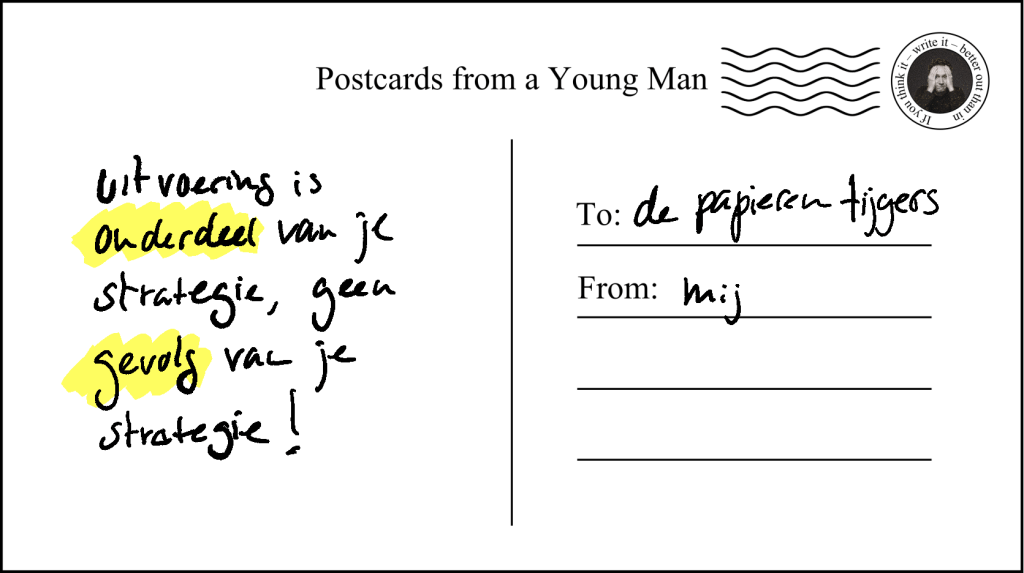 Postcards from a Young Man
If you think it – write it – better out than in
uitvoering is
onderdeel van je
strategie, geen
gevolg van je
strategie!
To: de papieren tijgers
From: mij